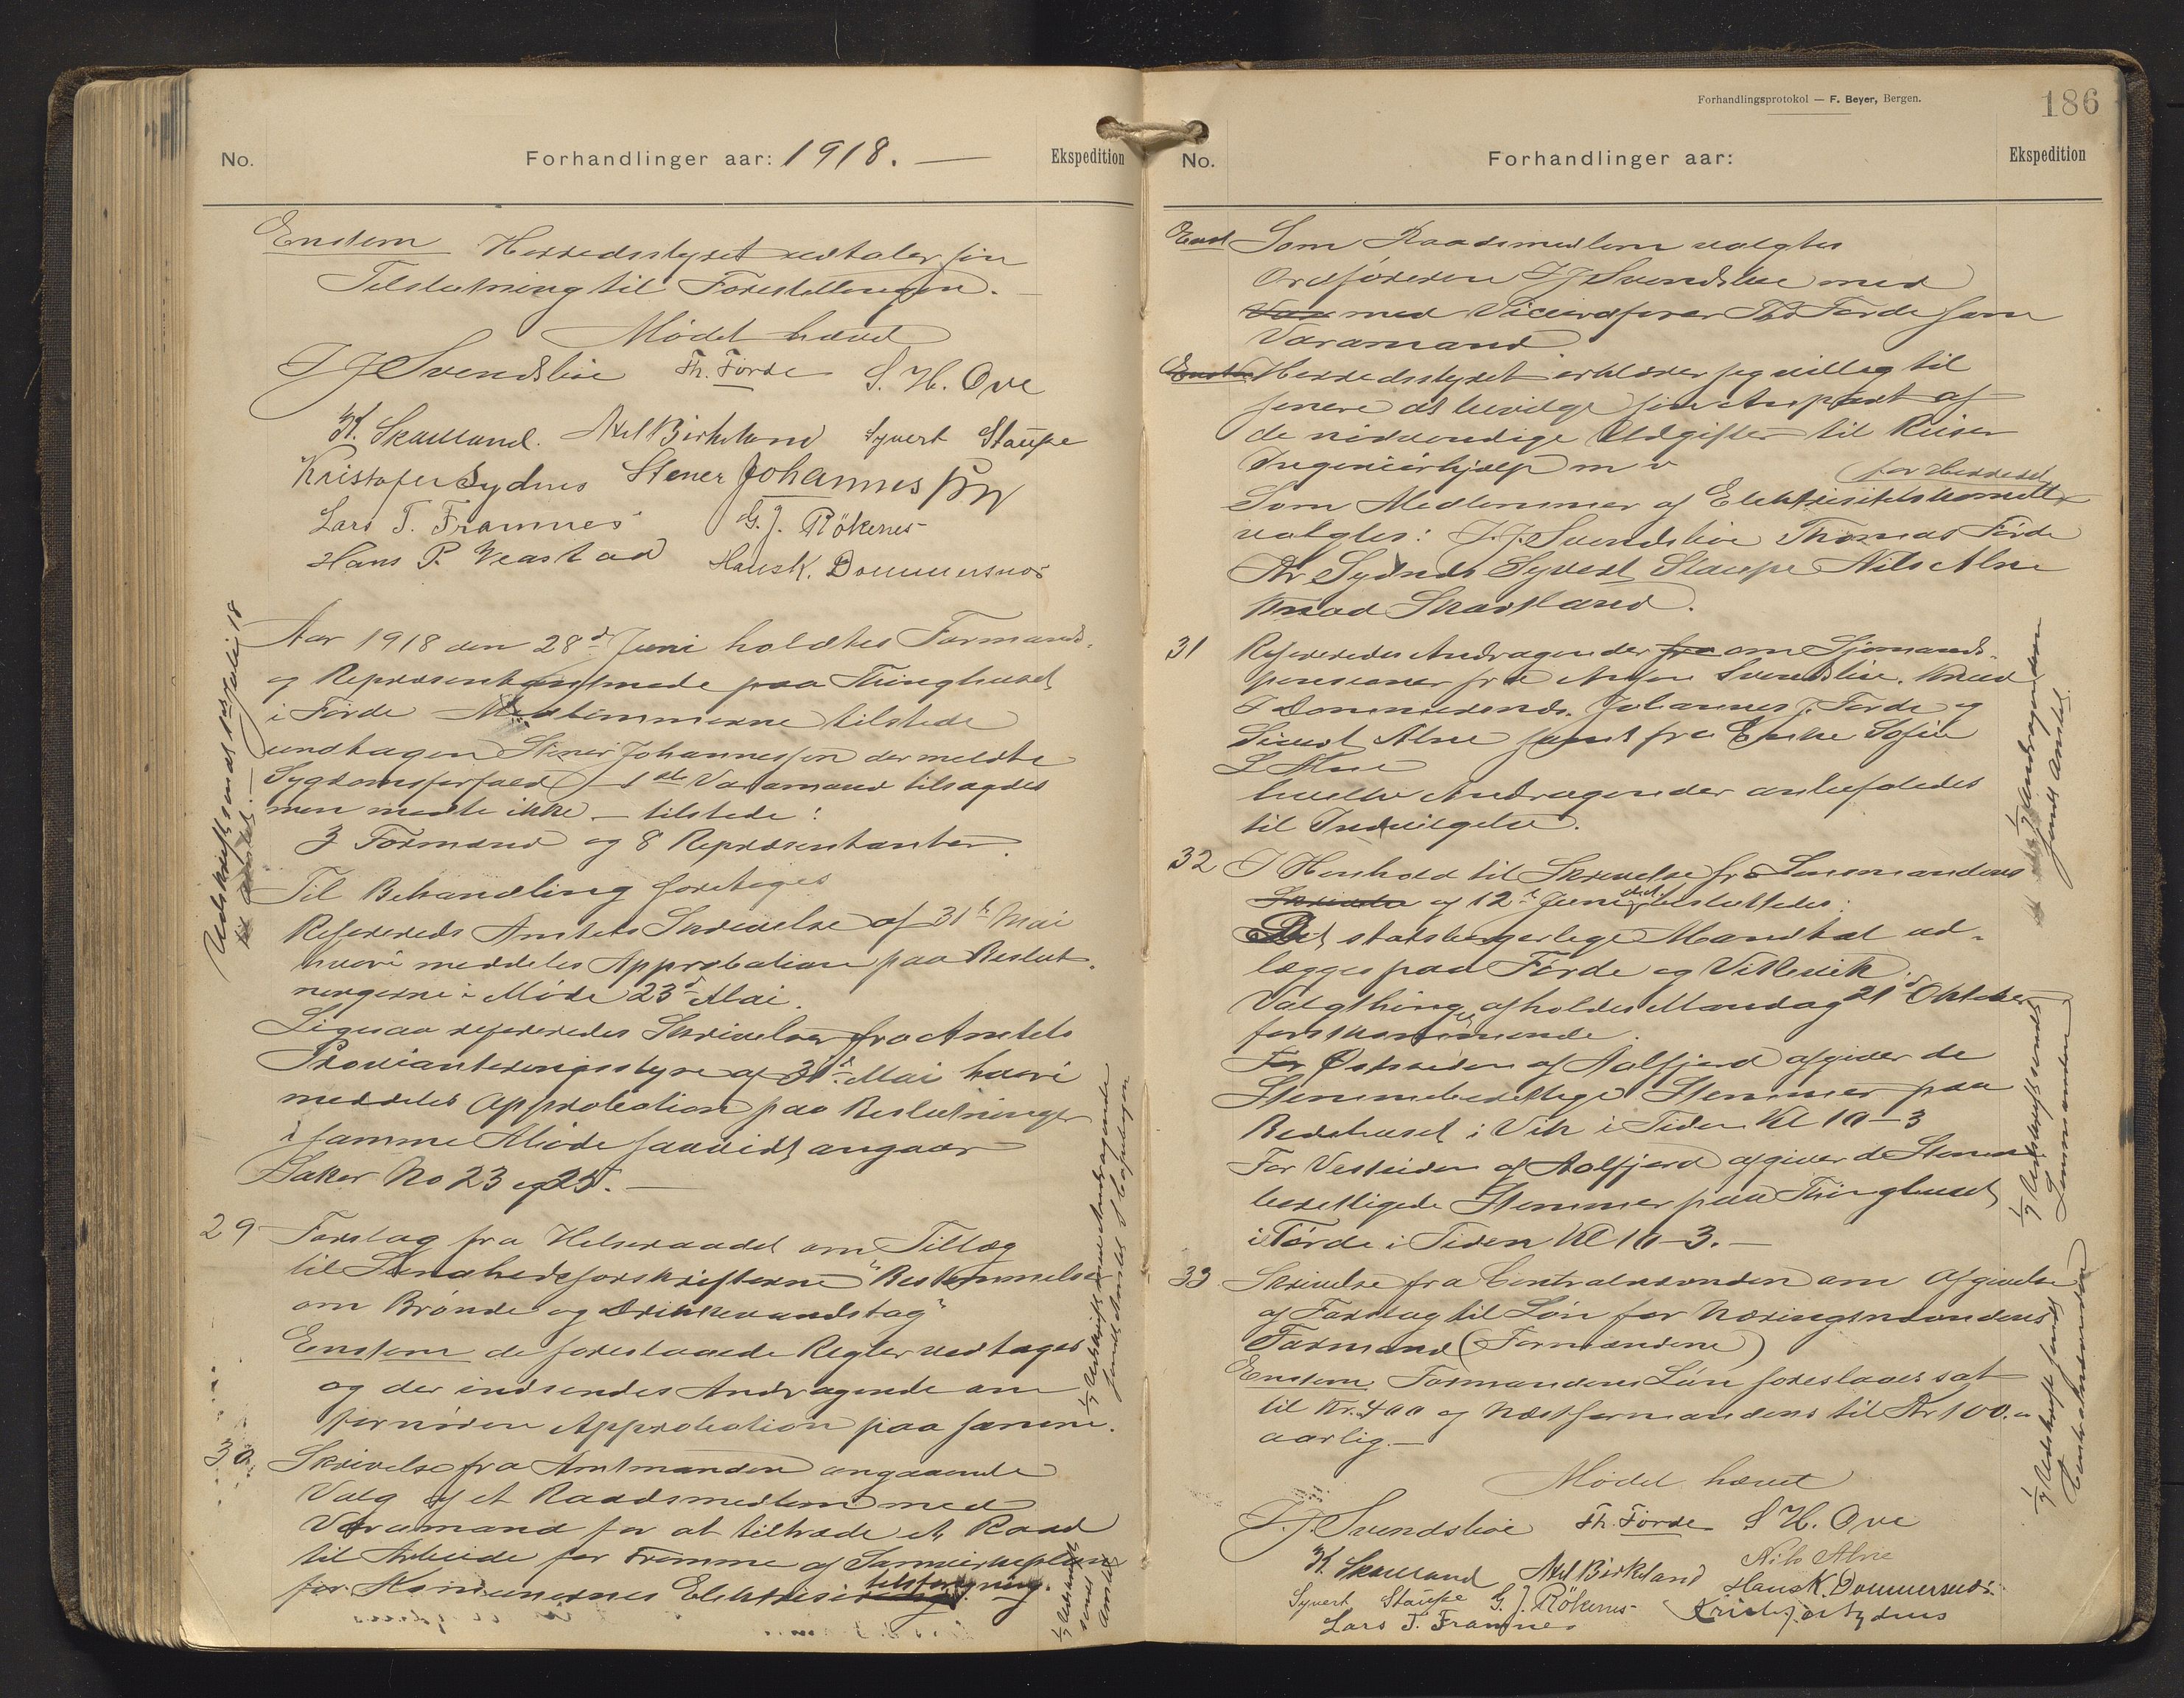 No.
Forhandlinger aar: 1918. —
Ekspedition
Enstem Herredsstyret vedtaler sin
Tilslutning til Forestillingen. —
Mødet hævet
J J Svendsbøe Th. Førde S. H. Ove
K. Skaulland. Axel Birkeland Syvert Staupe
Kristofer Sydnes Stener Johannessen
Lars T. Framnes G. J. Rökenes
Hans P. Veastad Hans K. Dommersnes
Aar 1918 den 28d Juni holdtes Formands-
og Repræsentantmøde paa Thinghuset
i Førde Medlemmerne tilstede
undtagen Stener Johannessen der meldte
Sygdomsforfald 1ste Varamand tilsagdes
men mødte ikke. — tilstede:
3 Formænd og 8 Repræsentanter.
Til Behandling foretoges
Refereredes Amtets Skrivelse af 31te Mai
hvori meddeles Approbation paa Beslut-
ningerne i Møde 23d Mai.
Ligesaa refereredes Skrivelser fra Amtets
Provianteringsstyre af 31te Mai hvori
meddeles Approbation paa Beslutninger
i samme Møde saavidt angaar
Saker No 23 og 25. —
29 Forslag fra Helseraadet om Tillæg
til Sundhedsforskrifterne "Bestemmelser
om Brønde og Drikkevandstag"
Enstem de foreslaaede Regler vedtages
og der indsendes Andragende om
fornøden Approbation paa samme.
30. Skrivelse fra Amtmanden angaaende
Valg af et Raadsmedlem med
Varamand for at tiltræde et Raad
til Arbeide for Fremme af Samvirkeplan
for Kommunernes Elektrisitetsforsyning.
Udskrift sendt
Amtet
1/7 Udskrift med Andragende
sendt Amtet
1/7 Udskrift
sendt
Amtet
Forhandlingsprotokol — F. Beyer, Bergen.
186
No.
Forhandlinger aar:
Ekspedition
Enst Som Raadsmedlem valgtes
Ordføreren J J Svendsbøe med
Vara med Viceordfører Th Førde som
Varamand
Enstem Herredsstyret erklærer seg villig til
senere at bevilge sin Anpart af
de nødvendige Udgifter til Reiser
Ingeniørhjælp m v
for Herredet
Som Medlemmer af Elektrisitetskomite
valgtes: J. J. Svendsbøe Thomas Førde
Kr Sydnes Syvert Staupe Nils Alne
Knud Skaulland.
31 Refereredes Andragender fra om Sjømands-
pensioner fra Svendsbøe. Knud
I Dommersnes. Johannes J. Førde og
Sivert Alne samt fra Enke Sofie
S Alne
hvilke Andragender anbefaledes
til Indvilgelse.
32 I Henhold til Skrivelse fra Lensmanden
Skrivelse af 12te Juni besluttedes:
Det statsborgerlige Mandtal ud-
lægges paa Førde og Vikevik.
Valgthinget afholdes Mandag 21d Oktober
førstkommende.
For Østsiden af Aalfjord afgiver de
Stemmeberettige Stemmer paa
Bedehuset i Vik i Tiden Kl 10-3
For Vestsiden af Aalfjord afgiver de Stemme
berettigede Stemmer paa Thinghuset
i Førde i Tiden Kl 10-3. —
33 Skrivelse fra Centralnævnden om Afgivelse
af Forslag til Løn for Næringsnævndens
Formand (Formændene)
Enstem Formandens Løn foreslaaes sat
til Kr. 400 og Næstformandens til Kr 100.-
aarlig. —
Mødet hævet
J. J. Svendsbøe Th. Førde S H. Ove
K Skaulland Axel Birkeland Nils Alne
Syvert Staupe G. J. Rökenes Hans K. Dommersnes
Lars T. Framnes Kristofer Sydnes
Andragender
sendt Amtet
1/7 Udskrift sendt
Lensmanden
1/7 Udskrift sendt
Centralnævnden